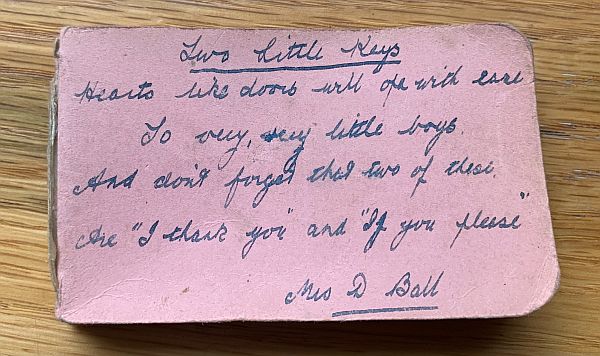 Two Little Keys
Hearts like doors will ope with ease
To very, very little
And don't forget that two of these.
Are "I thank you" and "If you please"
Mrs D Ball